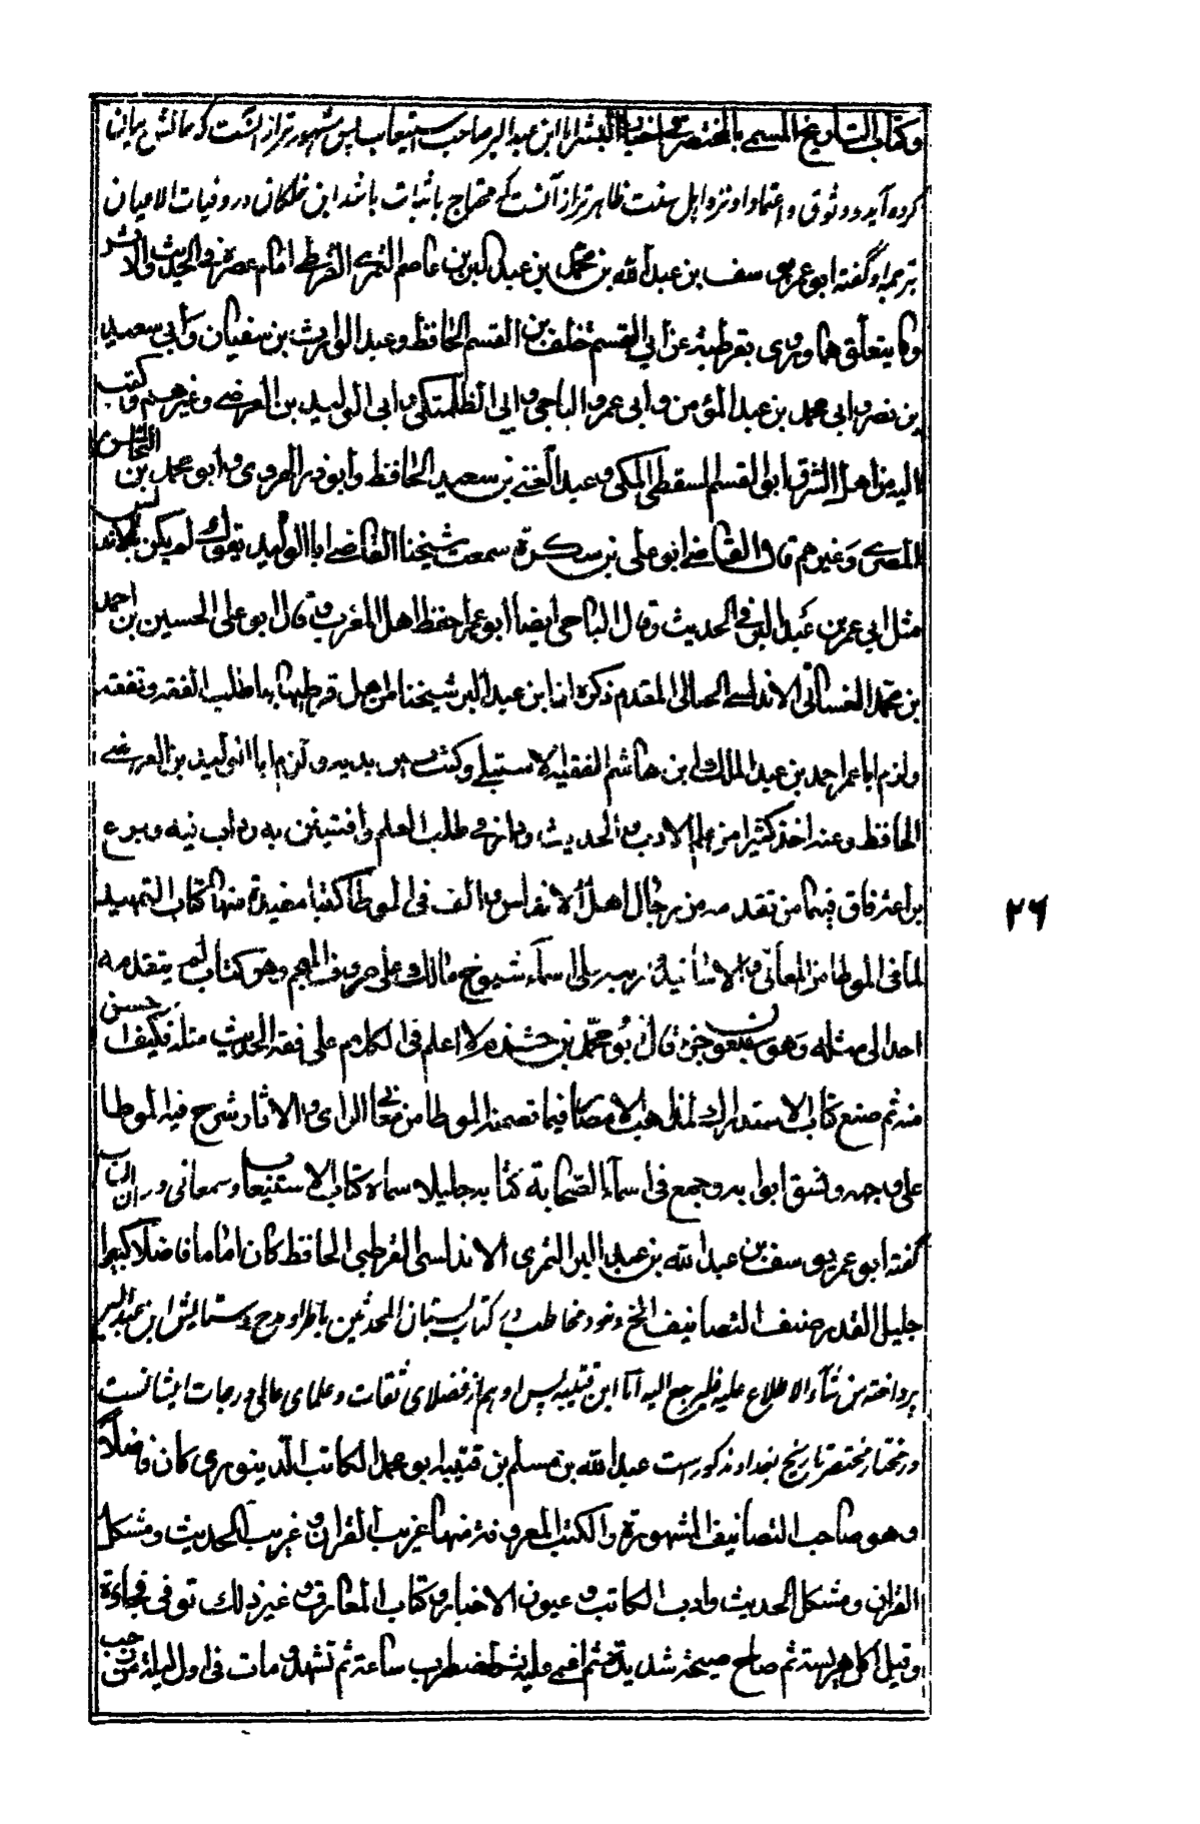 وكتاب التاريخ المسمى بالمختصر في اخبار البشر اما ابن عبد البر صاحب استيعاب پس مشهورتر از انست كه حالش بيان
كرده آيد و وثوق و اعتماد او نزد اهل سنت ظاهرتر از آنست كه محتاج باثبات باشد ابن خلكان در وفيات الاعيان
بترجمه او گفته ابو عمر يوسف بن عبد الله بن محمد بن عبد البر بن عاصم النمري القرطبي امام عصره في الحديث والاثر
وما يتعلق بهما روى بقرطبة عن ابي القسم خلف بن القسم الحافظ وعبد الوارث بن سفيان وابي سعيد
بن نصر وابي محمد بن عبد المؤمن وابي عمرو الباجي وابي الطلمنكي وابي الوليد بن الفرضي وغيرهم وكتب
اليه من اهل الشرق ابو القسم السقطي المكي وعبد الغني بن سعيد الحافظ وابو ذر الهروي وابو محمد بن النحاس
المصري وغيرهم قال القاضي ابو علي بن سكرة سمعت شيخنا القاضي ابا الوليد يقول لم يكن بالاندلس
مثل ابي عمر بن عبد البر في الحديث وقال الباجي ايضا ابو عمر احفظ اهل المغرب وقال ابو علي الحسين بن احمد
بن محمد الغساني الاندلسي الجياني المقدم ذكره ان ابن عبد البر شيخنا من اهل قرطبة بها طلب الفقه وتفقه
ولزم ابا عمر احمد بن عبد الملك ابن هاشم الفقيه الاشبيلي وكتب بين يديه ولزم ابا الوليد بن الفرضي
الحافظ وعنه اخذ كثيرا من علم الادب والحديث ودأب في طلب العلم وافتتن به ودأب فيه وبرع
براعة فاق فيها من تقدمه من رجال اهل الاندلس والف في الموطا كتبا مفيدة منها كتاب التمهيد
لما في الموطا من المعاني والاسانيد ورتبه على اسماء شيوخ مالك على حروف المعجم وهو كتاب لم يتقدمه
احد الى مثله وهو سبعون جزء قال ابو محمد بن حزم لا اعلم في الكلام على فقه الحديث مثله فكيف احسن
منه ثم صنع كتاب الاستدراك لمذاهب الامصار فيما تضمنه الموطا من معاني الراي والاثار شرح فيه الموطا
على وجهه ونسق ابوابه وجمع في اسماء الصحابة كتابه جليلا سماه كتاب الاستيعاب وسمعاني در انساب
گفته ابو عمر يوسف بن عبد الله بن عبد البر النمري الاندلسي القرطبي الحافظ كان اماما فاضلا كبيرا
جليل القدر صنف التصانيف الخ و خود مخاطب در كتاب بستان المحدثين باطراء و مدح و ستايش ابن عبد البر
پرداخته من شاء الاطلاع عليه فليرجع اليه اما ابن قتيبه پس او هم از فضلاى ثقات و علماى عالى درجات ايشانست
در مختار مختصر تاريخ بغداد مذكور است عبد الله بن مسلم بن قتيبة ابو محمد الكاتب الدينوري كان فاضلا
وهو صاحب التصانيف المشهورة والكتب المعروفة منها غريب القران وغريب الحديث ومشكل
القران ومشكل الحديث وادب الكاتب وعيون الاخبار وكتاب المعارف وغير ذلك توفي فجاءة
وقيل اكل هريسة ثم صاح صيحة شديدة ثم اغمي عليه ثم اضطرب ساعة ثم تشهد ومات في اول ليلة من رجب
۲۶